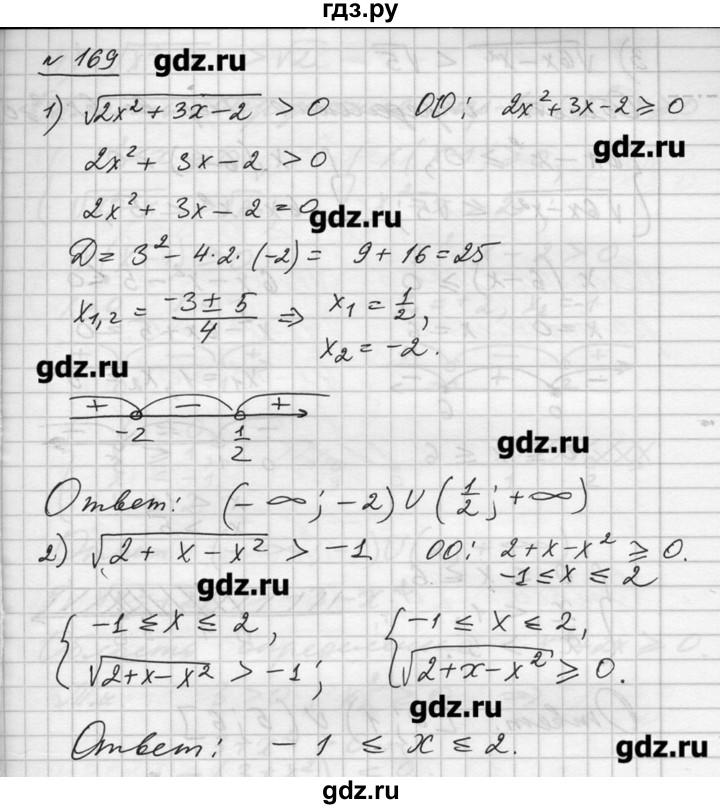 гдз.ру
№ 169 gdz.ru
1) √(2x² + 3x − 2) > 0 ОО: 2x² + 3x − 2 ≥ 0
gdz.ru
2x² + 3x − 2 > 0
2x² + 3x − 2 = 0
gdz.ru
D = 3² − 4·2·(−2) = 9 + 16 = 25
x₁,₂ = (−3 ± 5)/4 ⇒ x₁ = 1/2,
x₂ = −2.
gdz.ru
+ − +
−2 1/2
gdz.ru
Ответ: (−∞; −2) ∪ (1/2; +∞)
2) √(2 + x − x²) > −1 ОО: 2 + x − x² ≥ 0.
−1 ≤ x ≤ 2
gdz.ru
{ −1 ≤ x ≤ 2, { −1 ≤ x ≤ 2,
√(2 + x − x²) > −1; √(2 + x − x²) ≥ 0.
gdz.ru
Ответ: −1 ≤ x ≤ 2.
gdz.ru
gdz.ru